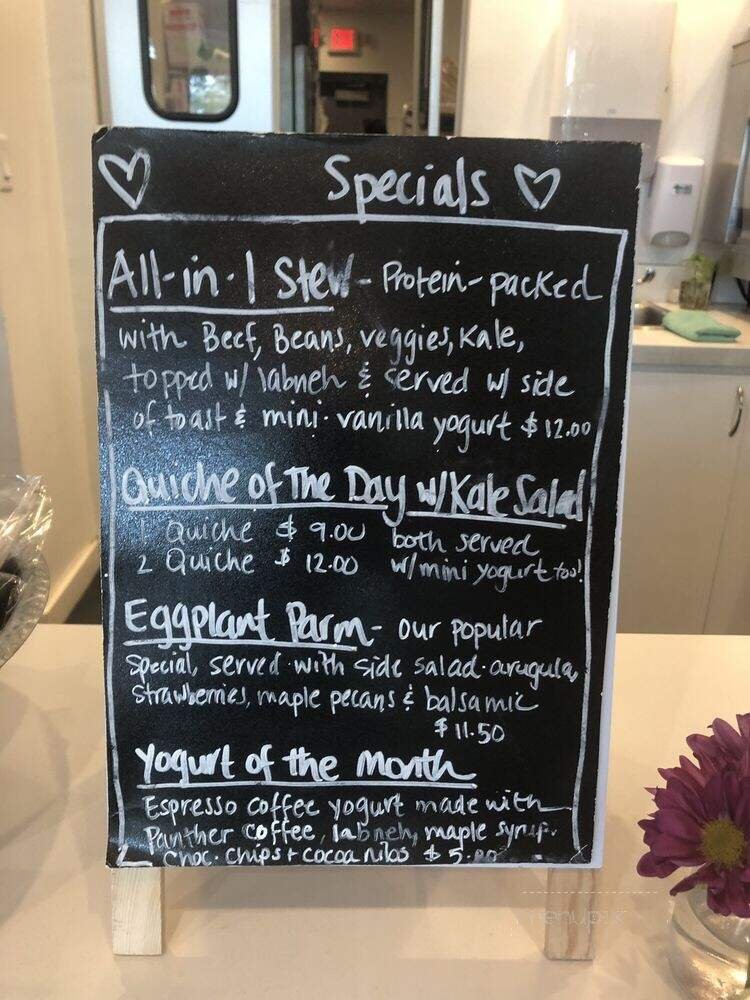 Specials
All-in-1 Stew - Protein-packed
with Beef, Beans, veggies, Kale,
topped w/ labneh & served w/ side
of toast & mini vanilla yogurt $12.00
Quiche of The Day w/ Kale Salad
1 Quiche $ 9.00 both served
2 Quiche $ 12.00 w/ mini yogurt too!
Eggplant Parm - our popular
Special, served with side salad - arugula,
Strawberries, maple pecans & balsamic
$11.50
Yogurt of the Month
Espresso coffee yogurt made with
Panther coffee, labneh, maple syrup.
choc. chips + cocoa nibs $5.00
menupix